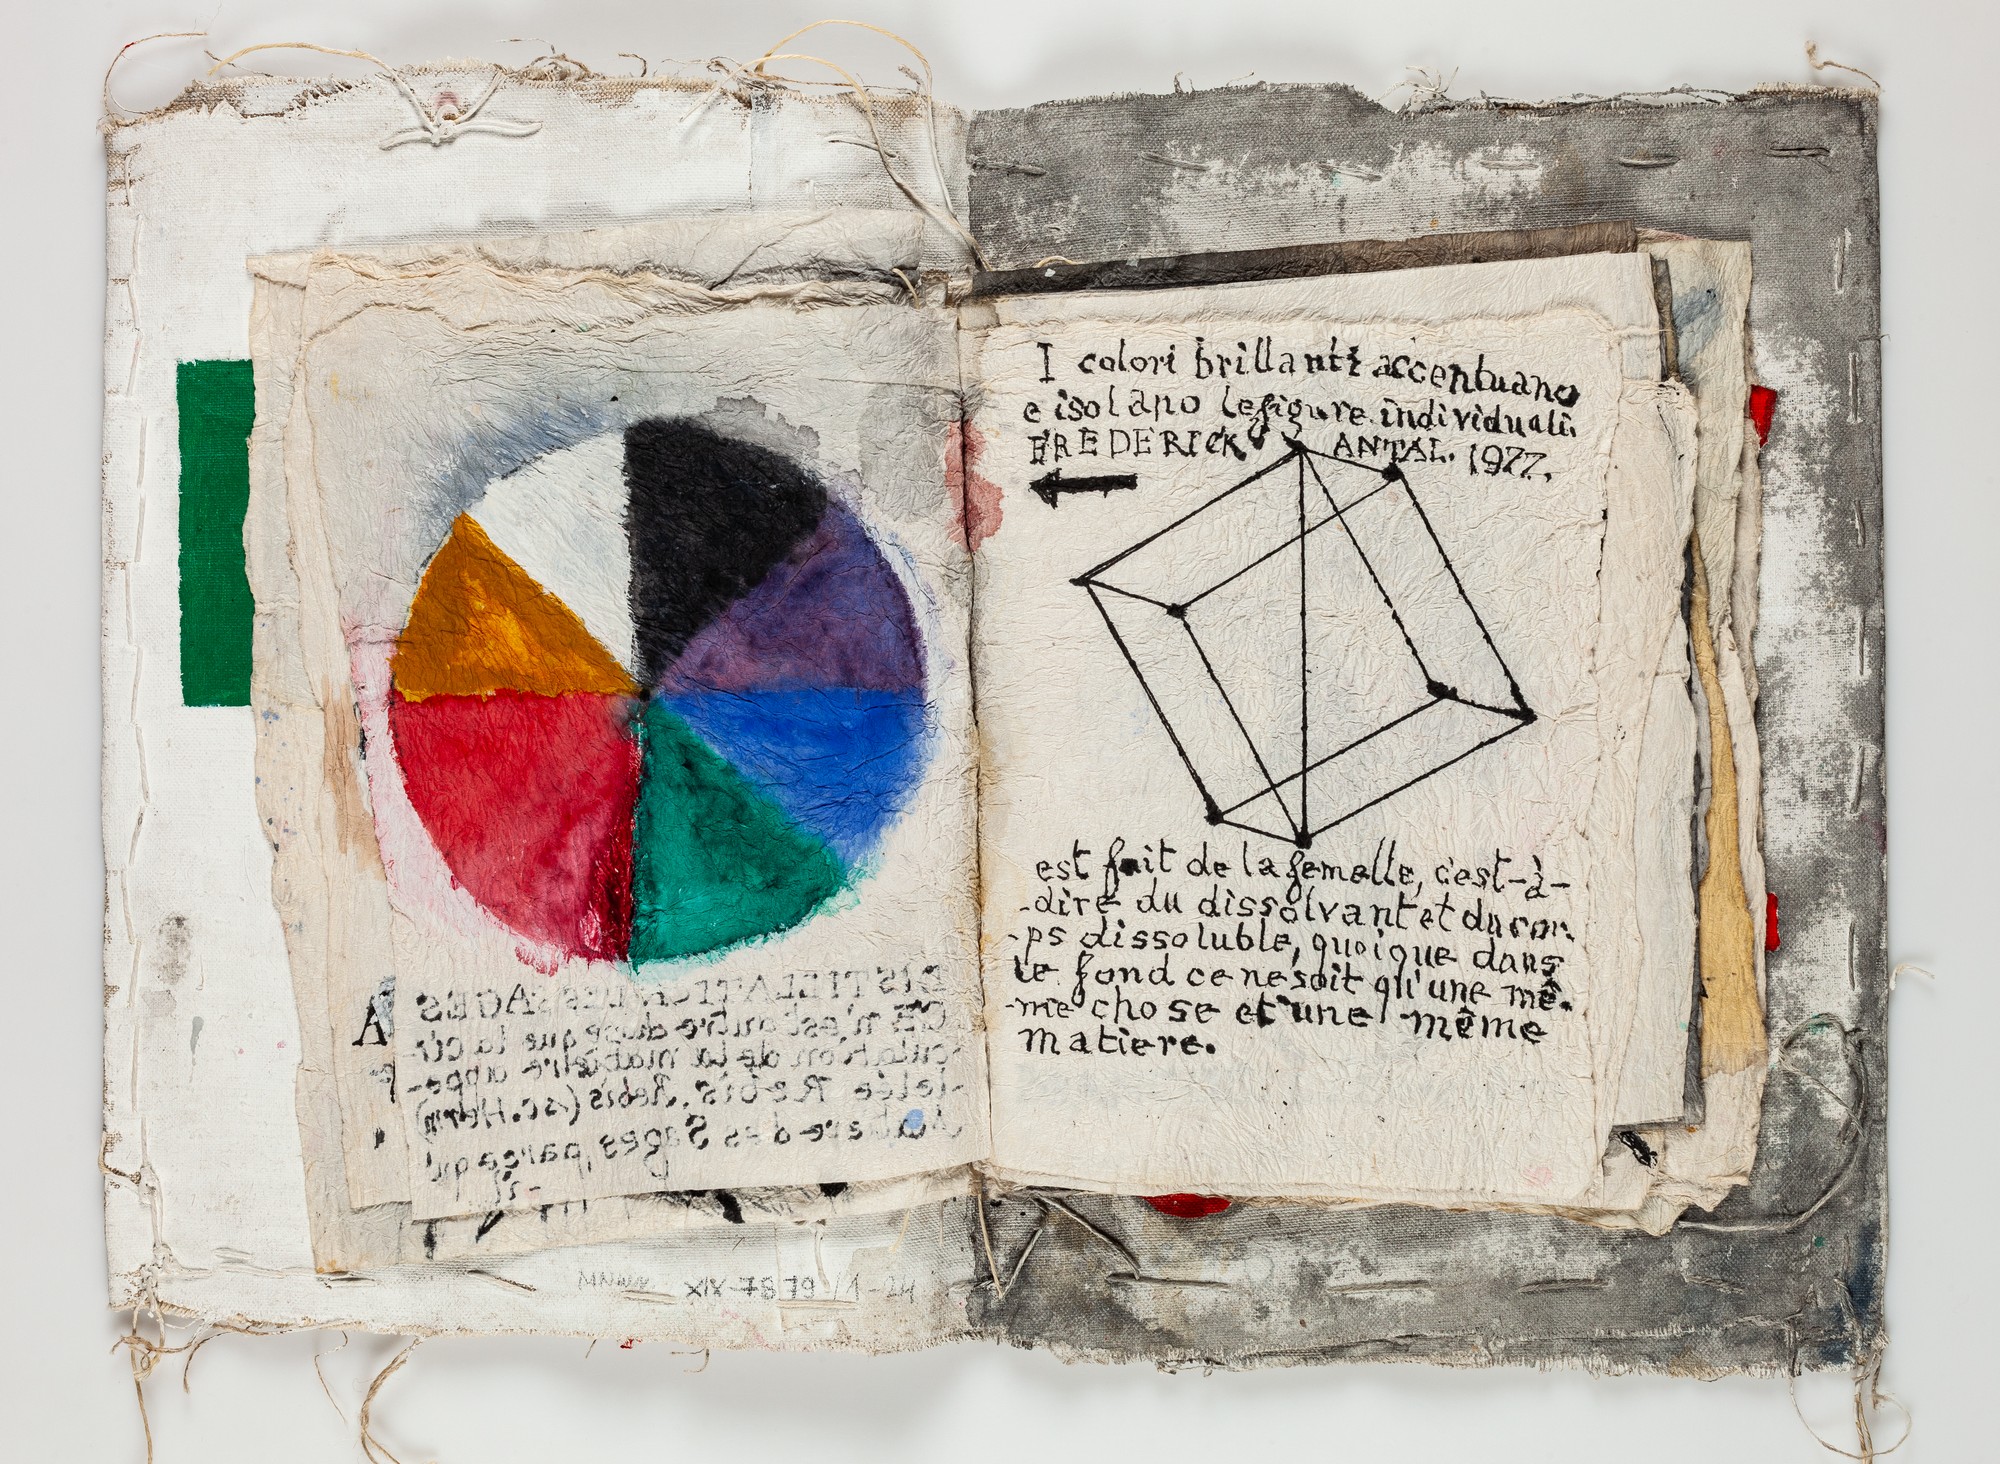 DISTILLATION DES SAGES
CE n'est autre chose que la cir-
culation de la matière appe-
lée Rebis. Rebis (sc. Herm)
Matiere des Sages, parce qu'
A
I colori brillanti accentuano
e isolano le figure individuali.
FREDERICK ANTAL. 1977.
est fait de la femelle, c'est-à-
-dire du dissolvant et du cor-
-ps dissoluble, quoique dans
le fond ce ne soit qu'une mê-
-me chose et une même
matiere.
XIX-7879/1-24